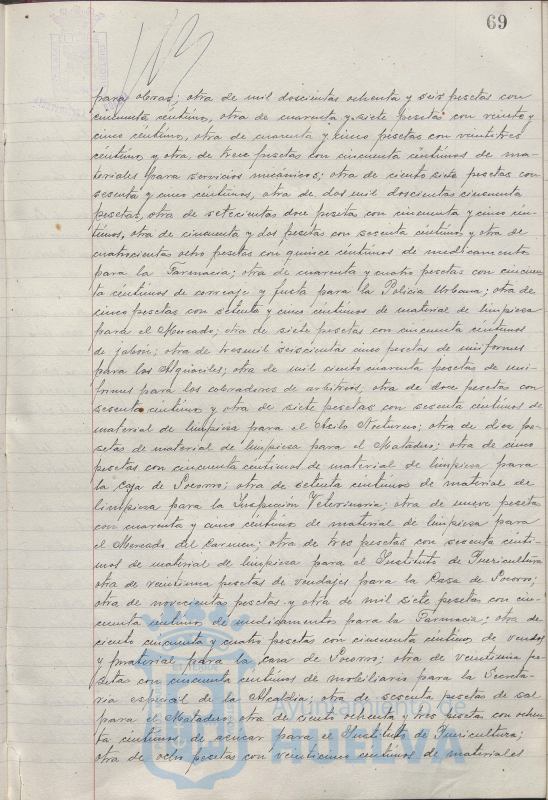 69
para obras; otra de mil doscientas ochenta y seis pesetas con
cincuenta céntimos, otra de cuarenta y siete pesetas con veinte y
cinco céntimos, otra de cuarenta y cinco pesetas con veintitres
céntimos y otra, de trece pesetas con cincuenta céntimos de ma-
teriales para servicios mecánicos; otra de ciento siete pesetas con
sesenta y cinco céntimos, otra de dos mil doscientas cincuenta
pesetas, otra de setecientas doce pesetas con cincuenta y cinco cén-
timos, otra de cincuenta y dos pesetas con sesenta céntimos y otra de
cuatrocientas ocho pesetas con quince céntimos de medicamentos
para la Farmacia; otra de cuarenta y cuatro pesetas con cincuen-
ta céntimos de correaje y fusta para la Policia Urbana; otra de
cinco pesetas con setenta y cinco céntimos de material de limpieza
para el Mercado; otra de siete pesetas con cincuenta céntimos
de jabón; otra de tresmil seiscientas cinco pesetas de uniformes
para los Alguaciles; otra de mil ciento cuarenta pesetas de uni-
formes para los cobradores de arbitrios, otra de doce pesetas con
sesenta céntimos y otra de siete pesetas con sesenta céntimos de
material de limpieza para el Asilo Nocturno; otra de diez pe-
setas de material de limpieza para el Matadero; otra de cinco
pesetas con cincuenta céntimos de material de limpieza para
la Casa de Socorro; otra de setenta céntimos de material de
limpieza para la Inspección Veterinaria; otra de nueve pesetas
con cuarenta y cinco céntimos de material de limpieza para
el Mercado del Carmen; otra de tres pesetas con sesenta cénti-
mos de material de limpieza para el Instituto de Puericultura
otra de veintiuna pesetas de vendajes para la Casa de Socorro;
otra de novecientas pesetas y otra de mil siete pesetas con cin-
cuenta céntimos de medicamentos para la Farmacia; otra de
ciento cincuenta y cuatro pesetas con cincuenta céntimos de vendas
y material para la casa de Socorro; otra de veintiuna pe-
setas con cincuenta céntimos de mobiliario para la Secreta-
ria especial de la Alcaldia; otra de sesenta pesetas de sal
para el Matadero; otra de ciento ochenta y tres pesetas con ochen-
ta céntimos de azucar para el Instituto de Puericultura;
otra de ocho pesetas con veinticinco céntimos de materiales
Ayuntamiento de
HUELVA